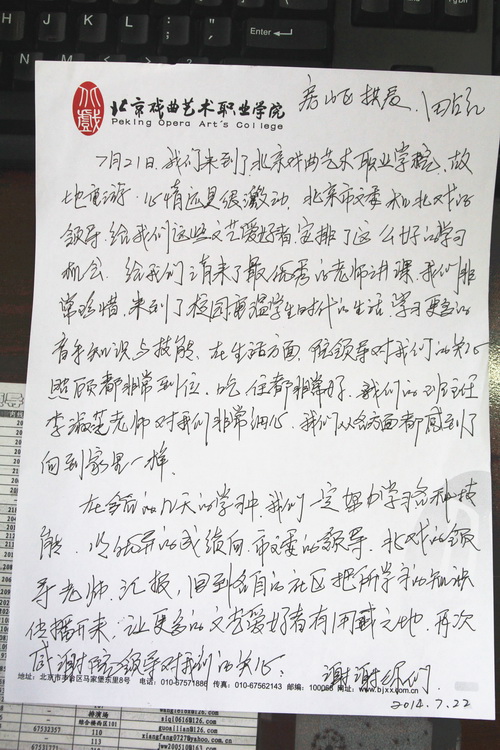 北戏
北京戏曲艺术职业学院
Peking Opera Art's College
房山区拱辰
7月21日,我们来到了北京戏曲艺术职业学院,故
地重游,心情还是很激动,北京市文委和北戏的
领导,给我们这些文艺爱好者,安排了这么好的学习
机会,给我们请来了最优秀的老师讲课,我们非
常珍惜,来到了校园重温学生时代的生活,学习更多的
音乐知识与技能,在生活方面,院领导对我们的关心
照顾都非常到位,吃住都非常好,我们的班主任
李淑芝老师对我们非常细心,我们从各方面都感到了
向到家里一样。
在今后的几天的学习中,我们一定努力学习各种技
能,以优异的成绩向市文委的领导、北戏的领
导老师,汇报,回到各自的社区把所学的知识
传播开来,让更多的文艺爱好者有用武之地,再次
感谢院领导对我们的关心,
谢谢你们
2014.7.22
地址:北京市丰台区马家堡东里8号 电话:010-67571886 传真:010-67562143 邮编:100068 网址:www.bjxx.com.cn
67532357
排演场
综合楼各区101
110
113
xiqi0616@126.com
guoailian@126.com
xiangfang0727@yahoo.com.cn